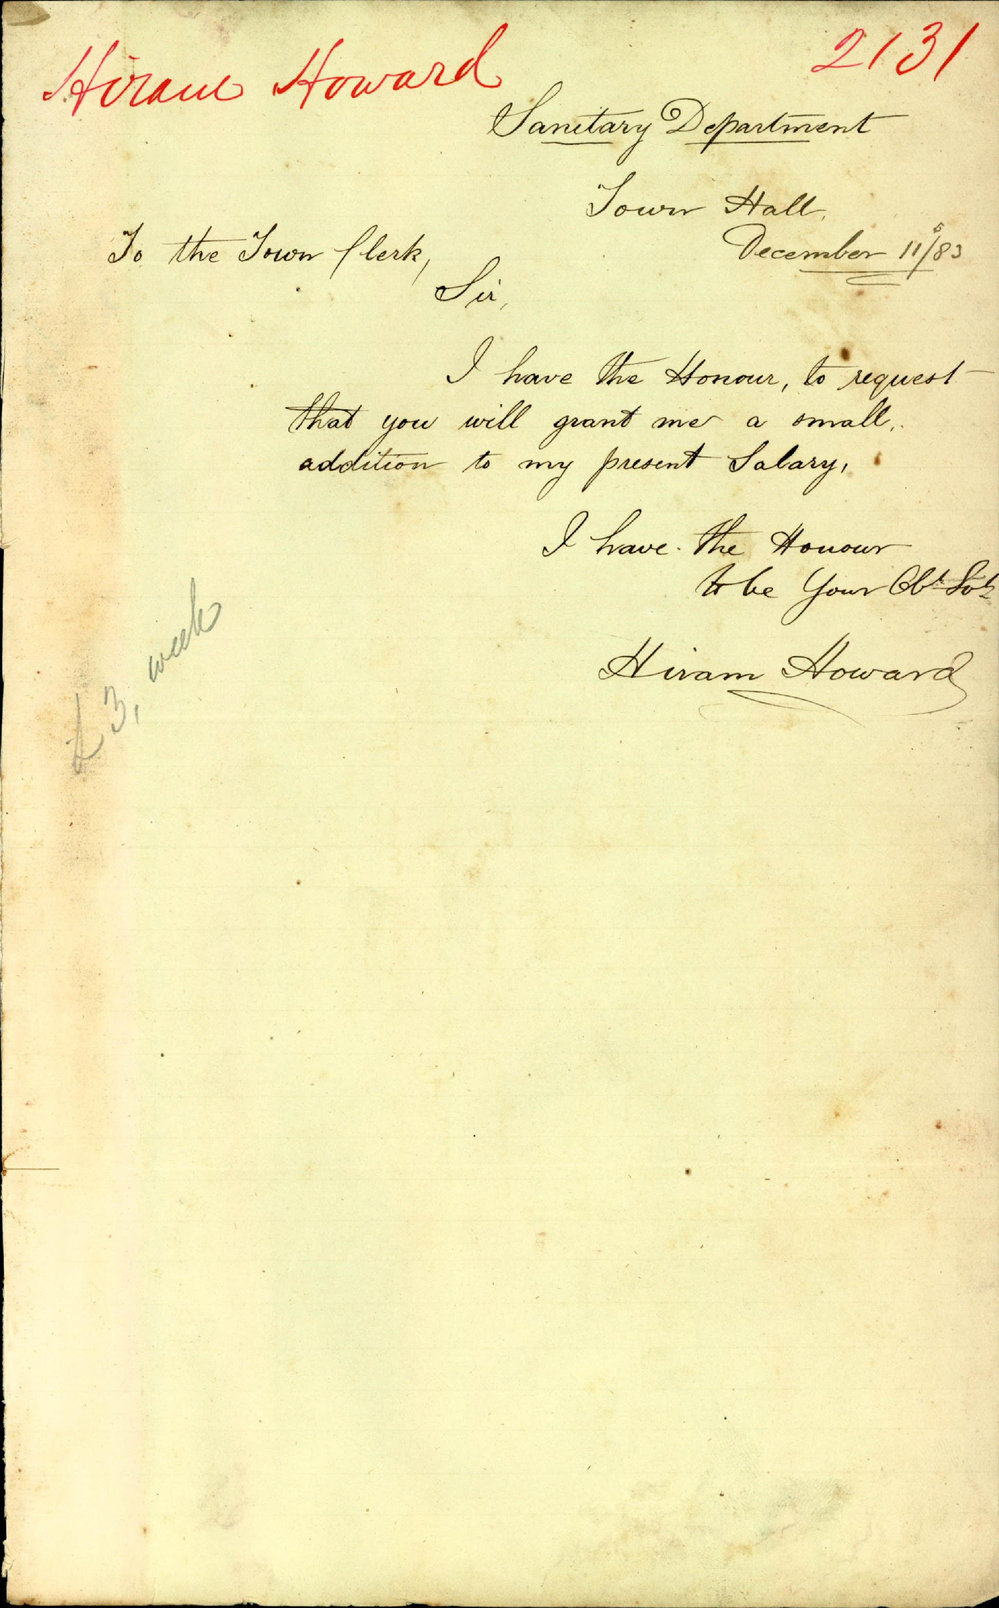 Hiram Howard
2131
Sanitary Department
Town Hall,
December 11/83
To the Town Clerk,
Sir,
I have the Honour, to request
that you will grant me a small
addition to my present Salary,
I have the Honour
to be Your Obt. Svt.
Hiram Howard
£3, week